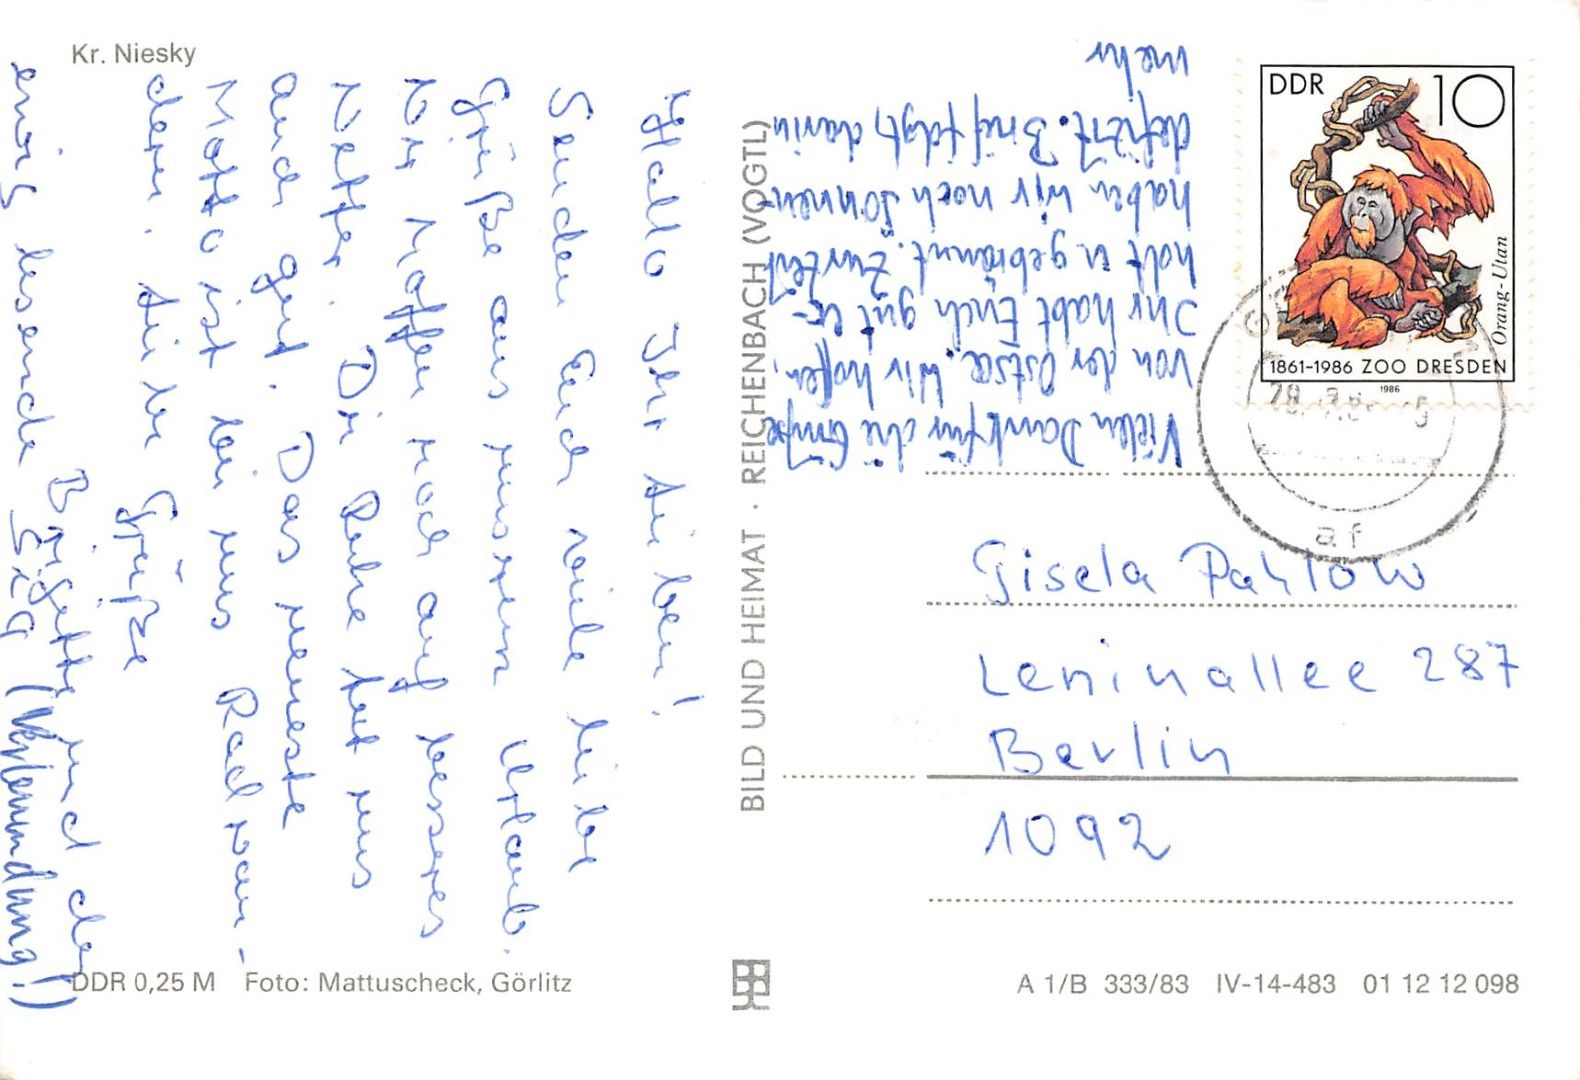 Kr. Niesky
Hallo Ihr Lieben!
Senden Euch viele liebe
Grüße aus unserem Urlaub.
Wir hoffen noch auf besseres
Wetter. Die Ruhe tut uns
auch gut. Das neueste
Motto ist bei uns Radwan-
dern. Liebe Grüße
Brigitte und der
ewig lesende Sig (Verleumdung!)
Vielen Dank für die Grüße
von der Ostsee. Wir hoffen,
Ihr habt Euch gut er-
holt u gebräunt. Zurzeit
haben wir noch Sonnen-
defizit. Brief folgt, darin
mehr
BILD UND HEIMAT · REICHENBACH (VOGTL)
DDR 10
Orang-Utan
1861-1986 ZOO DRESDEN
1986
af
Gisela Pahlow
Leninallee 287
Berlin
1092
DDR 0,25 M Foto: Mattuscheck, Görlitz
A 1/B 333/83 IV-14-483 01 12 12 098